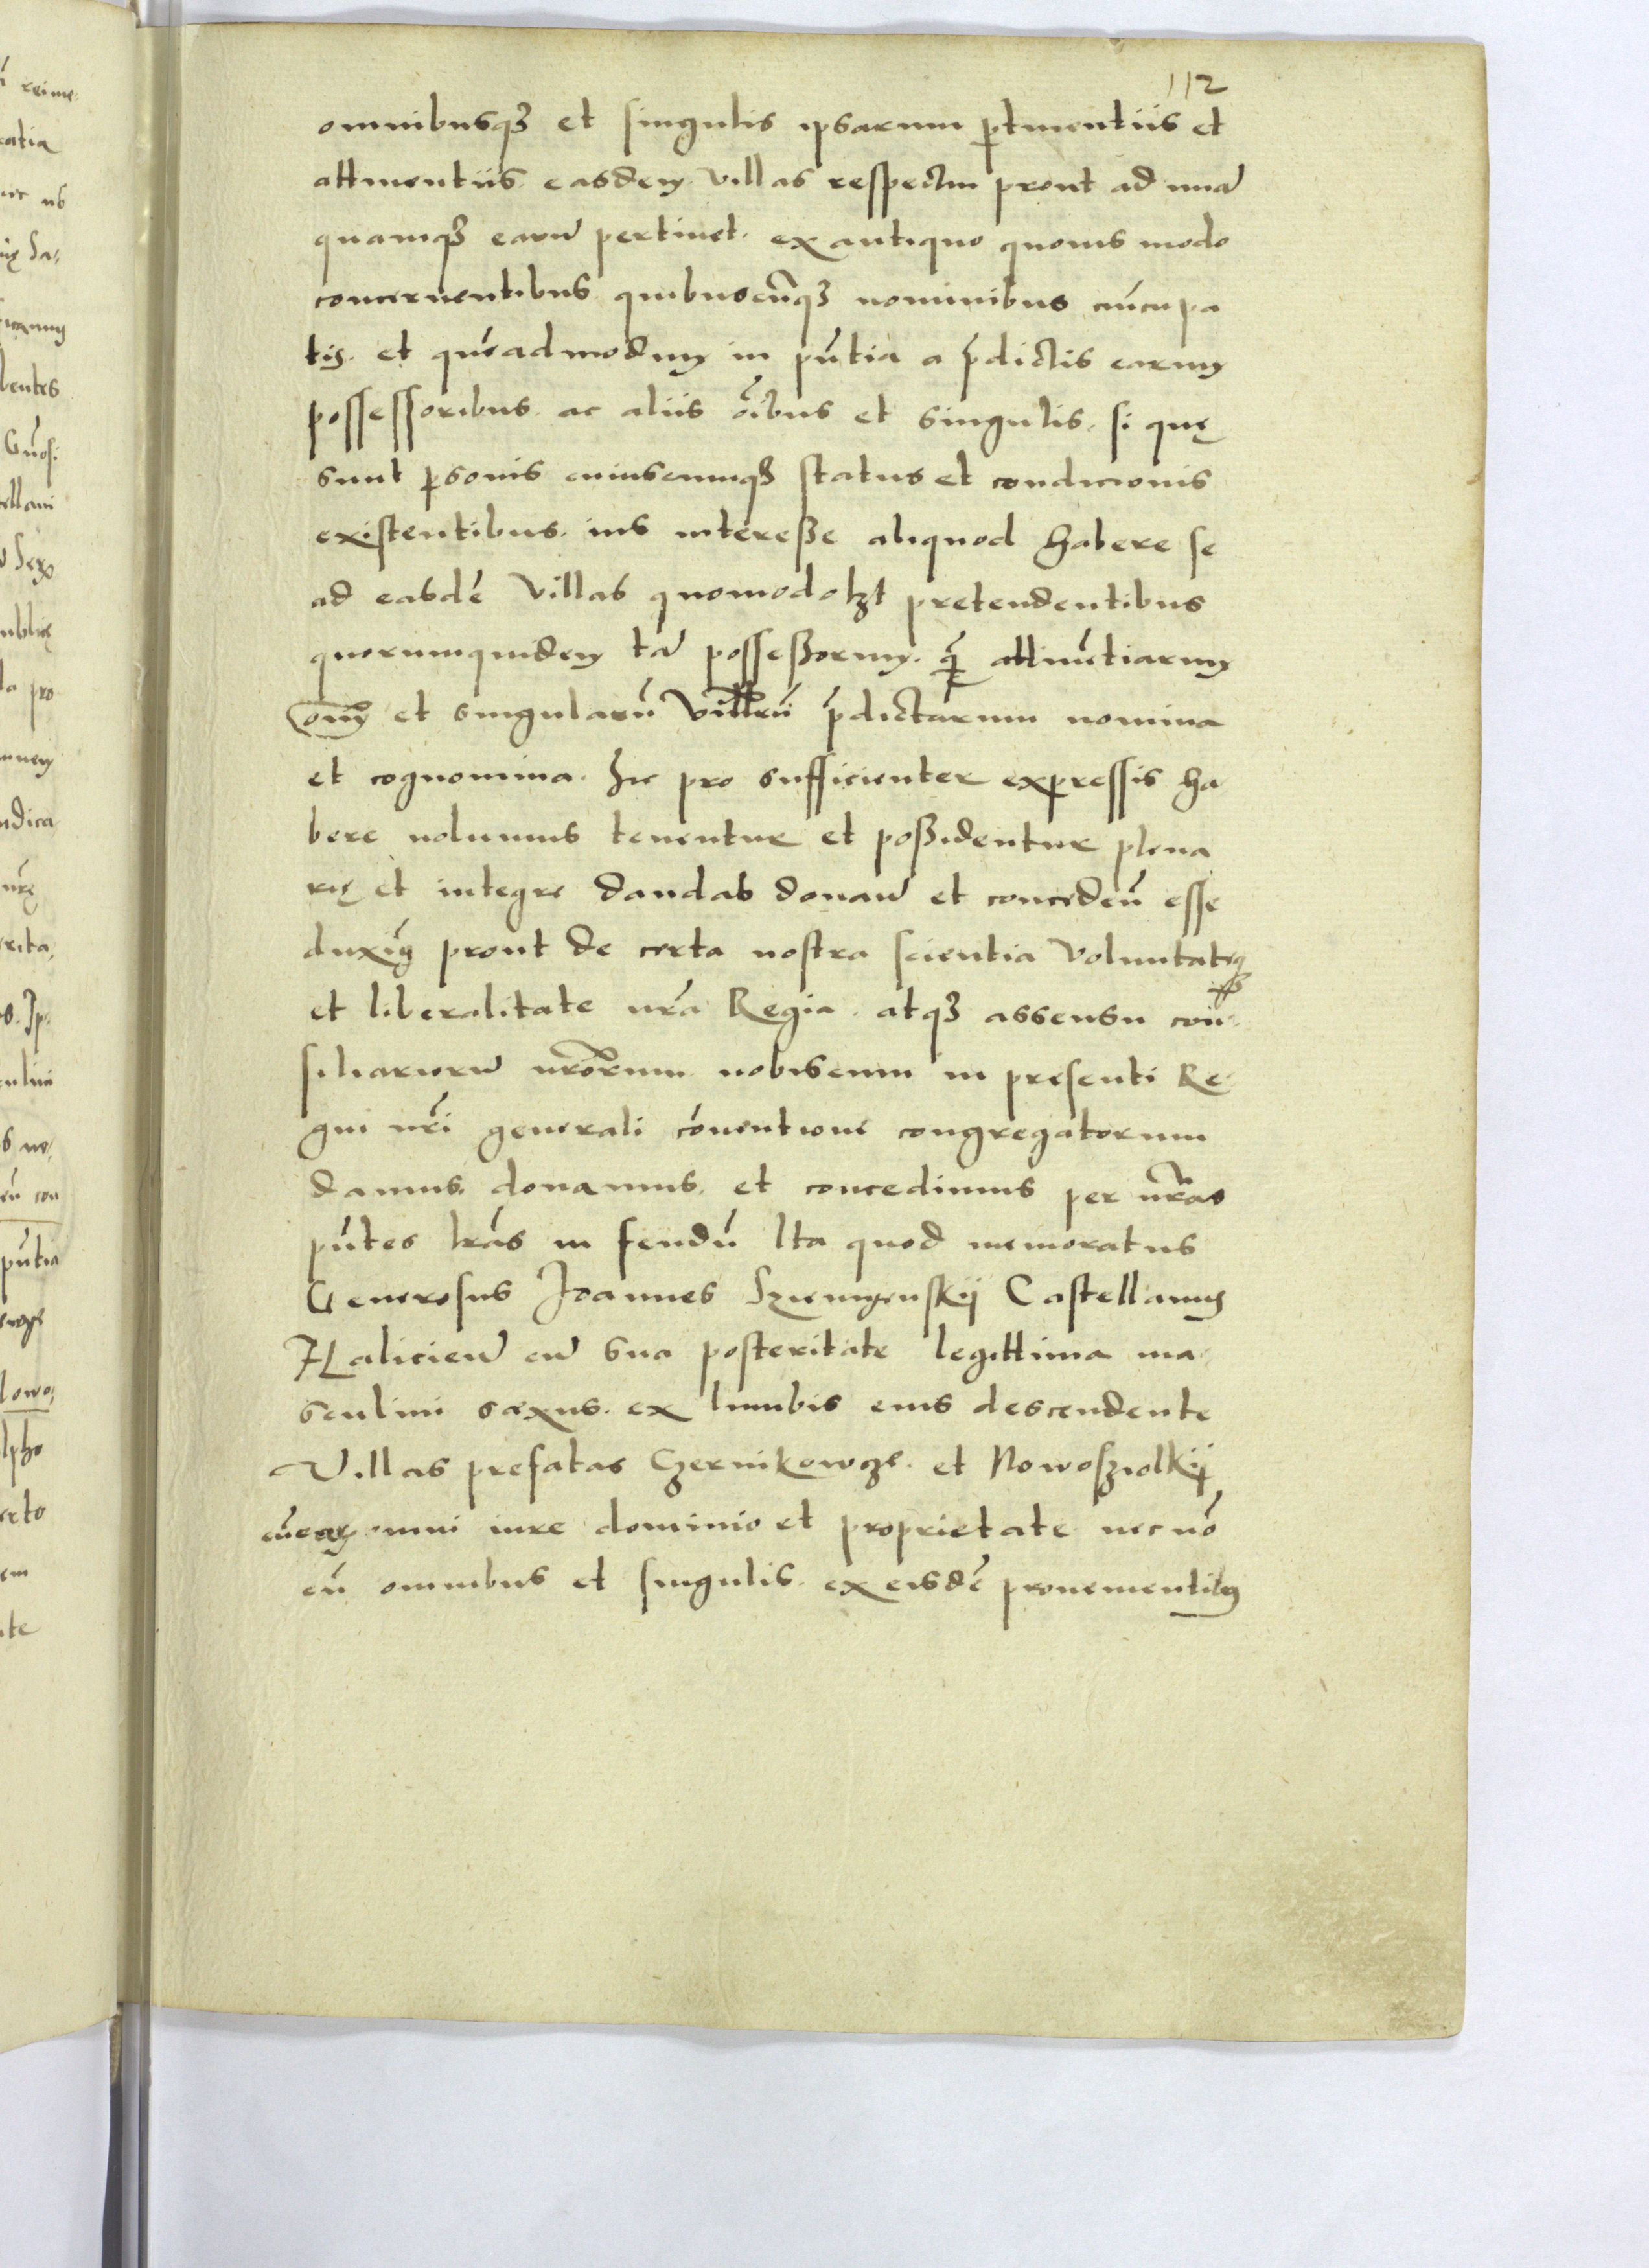 112
omnibusq3 et singulis ipsarum ꝑtinentiis et
attinentiis easdem villas respectu prout ad unā
quamq3 earū pertinet. ex antiquo quovis modo
concernentibus quibuscūq3 nominibus cūcupa
tis. et quēadmodum in pn̄tia a p̄dictis earum
possessoribus. ac aliis oībus et singulis. si quę
sunt ꝑsonis cuiuscumq3 status et condicionis
existentibus. ius interesse aliquod habere se
ad easdē villas quomodolꝫt pretendentibus
quorumquidem tā possessorum. q̄ attinētiarum
oīm et singularū villarū p̄dictarum nomina
et cognomina. hic pro sufficienter expressis ha
bere volumus tenentur et possidentur plena
rię et integre dandas donan̄ et conceden̄ esse
duxim̄ prout de certa nostra scientia voluntateq3
et liberalitate nr̄a Regia. atq3 assensu con
siliariorū nr̄orum nobiscum in presenti Re
gni nr̄i generali cōventione congregatorum
damus. donamus. et concedimus per nr̄as
pn̄tes lr̄as in feudū Ita quod memoratus
Generosus Joannes Szumyenskij Castellanus
Halicien̄ cū sua posteritate legittima ma
sculini sexus. ex lumbis eius descendente
Villas prefatas Czernikowcze. et Nowosziolkij
cū omni iure dominio et proprietate necnō
cū omnibus et singulis. ex eisdē provenientibus